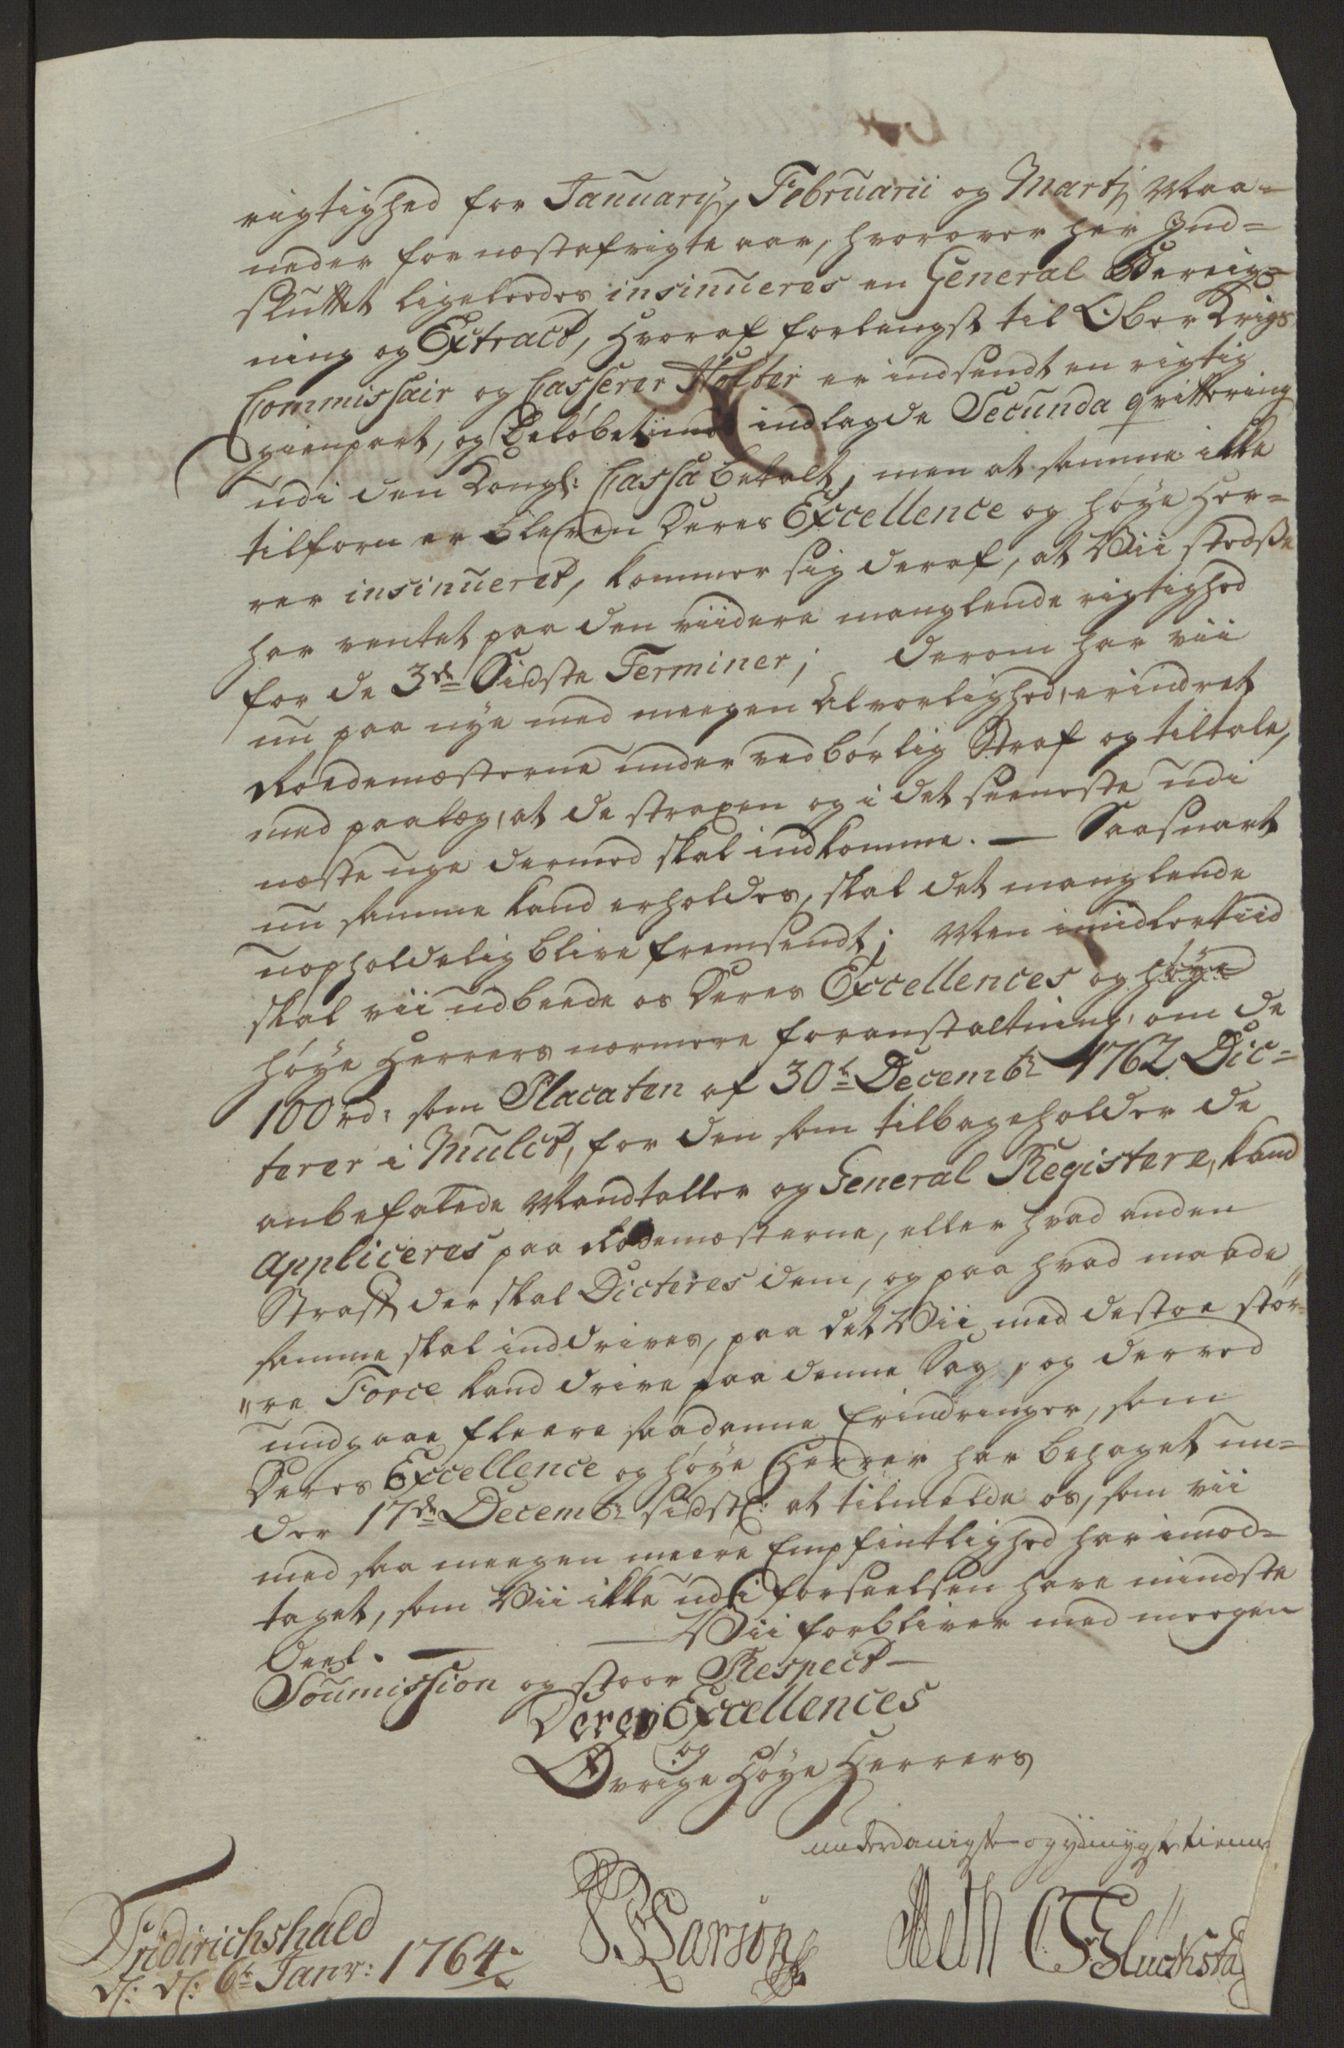 rigtighed for January, Februarii og Martj Maa-
neder for næstafvigte aar, hvorover her Ind-
sluttet ligeleedes insinueres en General Bereig-
ning og Extract, hvoraf forlengst til Ober Krigs
Commissair og Casserer Holter er indsendt en rigtig
gienpart, og Beløbet imod indlagde Secunda qvittering
udi den Kongl: Cassa betalt, men at samme ikke
tilforn er bleven Deres Excellence og høye Her-
rer insinueret, kommer sig deraf, at Vii stedsse
har ventet paa den viidere manglende rigtighed
for de 3de Sidste Terminer; derom har vii
nu paa nye med meegen Alvorlighed, erindret
Roedemæsterne under vedbørlig Straf og tiltale,
med paalæg, at de straxen og i det seeneste udi
næste uge dermed skal indkomme. — Saasnart
nu samme kand erholdes, skal det manglende
uopholdelig blive fremsendt; Men imidlertiid
skal vii udbeede os Deres Excellences og høye
høye Herrers nærmere foranstaltning, om de
100 rd: som Placaten af 30te Decembr 1762 Dic-
terer i Mulct, for den som tilbageholder de
anbefalede Mandtaller og General Registere, kand
appliceres paa Rodemesterne, eller hvad anden
Straff der skal Dicteres dem, og paa hvad maade
samme skal inddrives, paa det Vii med destoe stør-
"re Force kand drive paa denne Sag, og derved
undgaae fleere saadanne Erindringer, som
Deres Excellence og høye Herrer har behaget un-
der 17de Decembr sidstl: at tilmelde os, som vii
med saa meegen meere Empfintlighed har imod-
taget, som Vii ikke udi forseelsen have mindste
Deel. — — Vii forbliver med meegen
Soumission og stoor Respect —
Deres Excellences
og
Øvrige Høye Herrers
underdanigste og ydmygste tiennere
Fridirichshald
d: 6te Janr: 1764
Larson Meth Glückstad